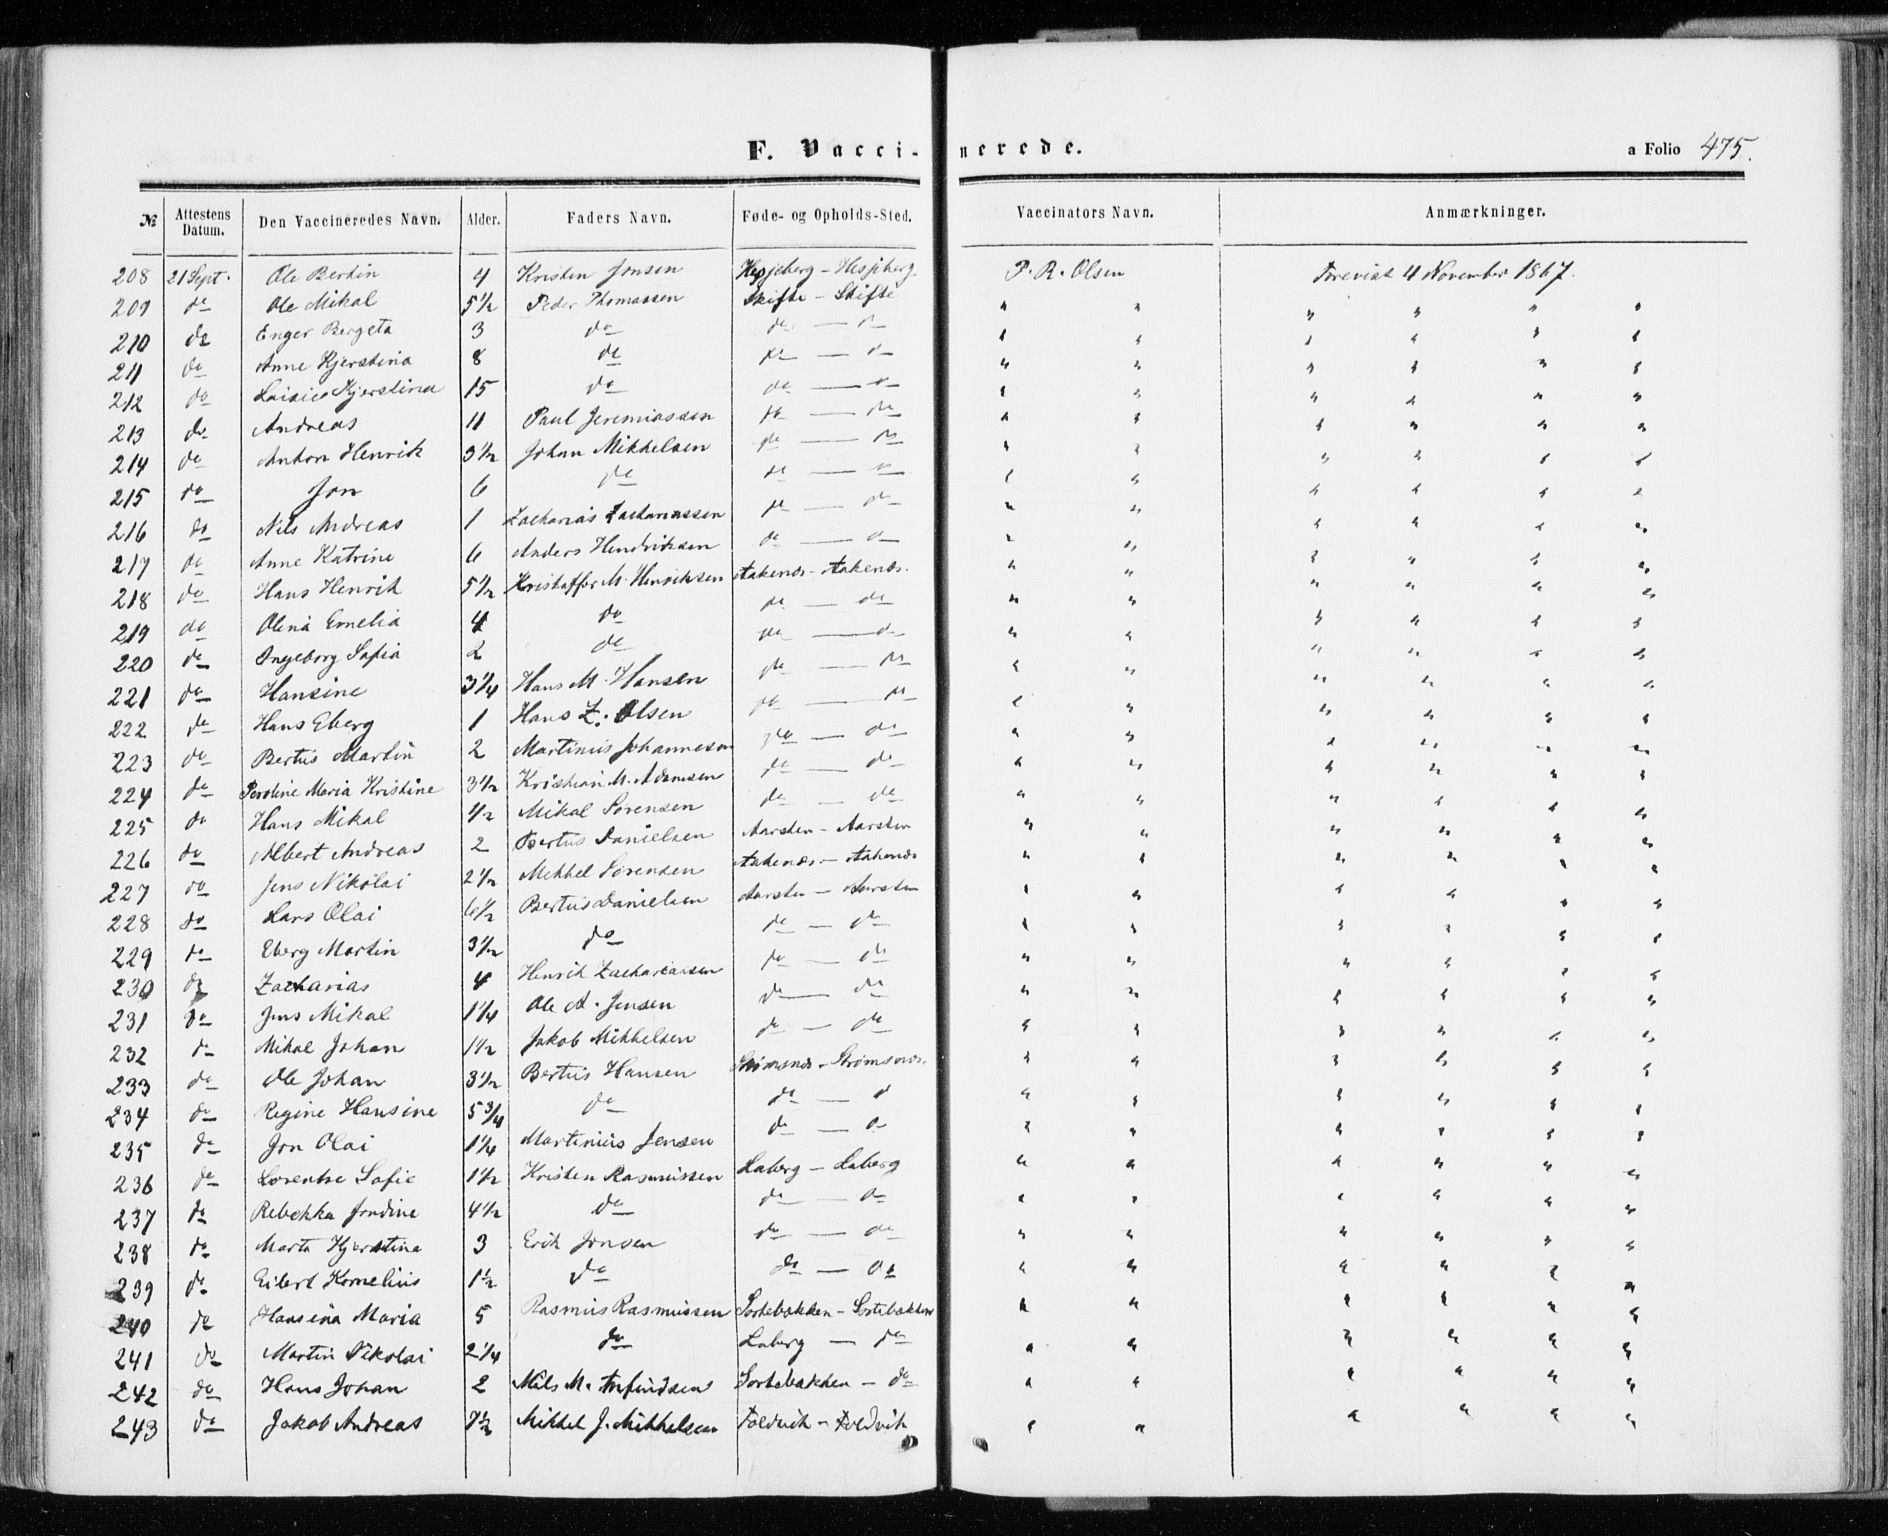 F. Vacci- nerede. a Folio 475.
№ Attestens Datum. Den Vaccineredes Navn. Alder. Faders Navn. Føde- og Opholds-Sted. Vaccinators Navn. Anmærkninger.
208 21 Sept. Ole Bertin 4 Kristen Jonsen Hesjeberg - Hesjberg P. R. Olsen Forevist 4 November 1867.
209 do Ole Mikal 5 1/2 Peder Thomassen Skifte - Skifte " " " " " "
210 do Enger Bergeta 3 do do — do " " " " " "
211 do Anne Kjerstina 8 do do — do " " " " " "
212 do Kjerstina 15 do do — do " " " " " "
213 do Andreas 11 Paul Jeremiassen do — do " " " " " "
214 do Anton Henrik 3 1/2 Johan Mikkelsen do — do " " " " " "
215 do Jon 6 do do — do " " " " " "
216 do Nils Andreas 1 Zacharias Zachariassen do — do " " " " " "
217 do Anne Katrine 6 Anders Hendriksen do — do " " " " " "
218 do Hans Henrik 5 1/2 Kristoffer M. Henriksen Aakenes - Aakenes. " " " " " "
219 do Olena Emelia 4 do do — do " " " " " "
220 do Ingeborg Sofia 2 do do — do " " " " " "
221 do Hansine 3 1/4 Hans M. Hansen do — do " " " " " "
222 do Hans Eberg 1 Hans Z. Olsen do — do " " " " " "
223 do Bertus Martin 2 Martinus Johannesen do — do " " " " " "
224 do Peroline Maria Kristine 3 1/2 Kristian M. Adamsen do — do " " " " " "
225 do Hans Mikal 1/2 Mikal Sørensen do — do " " " " " "
226 do Albert Andreas 2 Bertus Danielsen Aarsten - Aarsten " " " " " "
227 do Jens Nikolai 2 1/2 Mekkel Sørensen Aakenes - Aakenes " " " " " "
228 do Lars Olai 6 1/2 Bertus Danielsen Aarsten - Aarsten " " " " " "
229 do Eberg Martin 3 1/2 do do — do " " " " " "
230 do Zacharias 4 Henrik Zachariassen do — do " " " " " "
231 do Jens Mikal 1 1/4 Ole A. Jensen do — do " " " " " "
232 do Mikal Johan 1 1/2 Jakob Mikkelsen do — do " " " " " "
233 do Ole Johan 3 1/2 Bertus Hansen Strømsnes - Strømsnes. " " " " " "
234 do Regine Hansine 5 3/4 do do — d " " " " " "
235 do Jon Olai 1 1/4 Martinius Jensen do — do " " " " " "
236 do Lorentse Sofie 1 1/2 Kristen Rasmussen Laberg - Laberg " " " " " "
237 do Rebekka Jondine 4 1/2 do do — do " " " " " "
238 do Marta Kjerstine 3 Erik Jonsen do — do " " " " " "
239 do Eilert Kornelius 1 1/2 do do — do " " " " " "
240 do Hansina Maria 5 Rasmus Rasmussen Sortebakken - Sortebakken " " " " " "
241 do Martin Nikolai 2 1/4 do Laberg — do " " " " " "
242 do Hans Johan 2 Nils M. Arfindsen Sortebakken - do " " " " " "
243 do Jakob Andreas 7 1/2 Mikkel J. Mikkelsen Foldvik - Foldvik " " " " " "